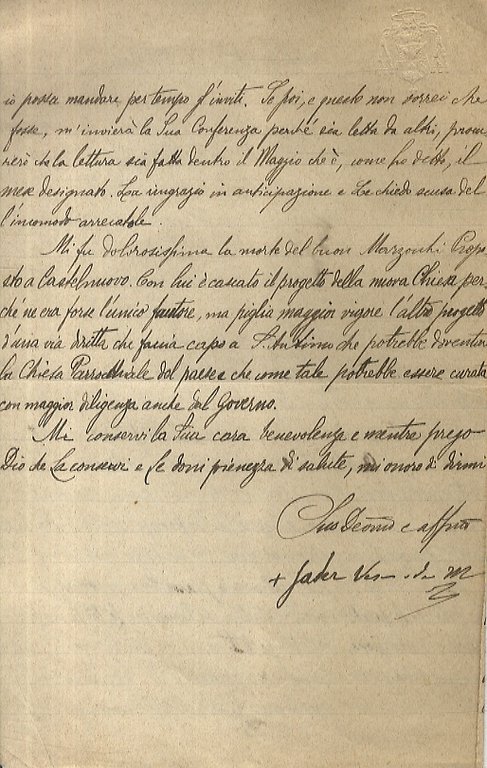 io possa mandare per tempo gl'inviti. Se poi, e questo non vorrei che
fosse, m'invierà la Sua Conferenza perché sia letta da altri, procu
rerò che la lettura sia fatta dentro il Maggio che è, come ho detto, il
mese designato. La ringrazio in anticipazione e Le chiedo scusa del
l'incomodo arrecatole.
Mi fu dolorosissima la morte del buon Marzocchi Propo
sto a Castelnuovo. Con lui è cascato il progetto della nuova Chiesa per
ché ne era forse l'unico fautore, ma piglia maggior vigore l'altro progetto
d'una via diritta che faccia capo a S. Antimo che potrebbe diventar
la Chiesa Parrocchiale del paese e che come tale potrebbe essere curata
con maggior diligenza anche dal Governo.
Mi conservi la Sua cara benevolenza e mentre prego
Dio che La conservi e Le doni pienezza di salute, mi onoro di dirmi
Suo Devmo e affmo
+ Vesc. di M